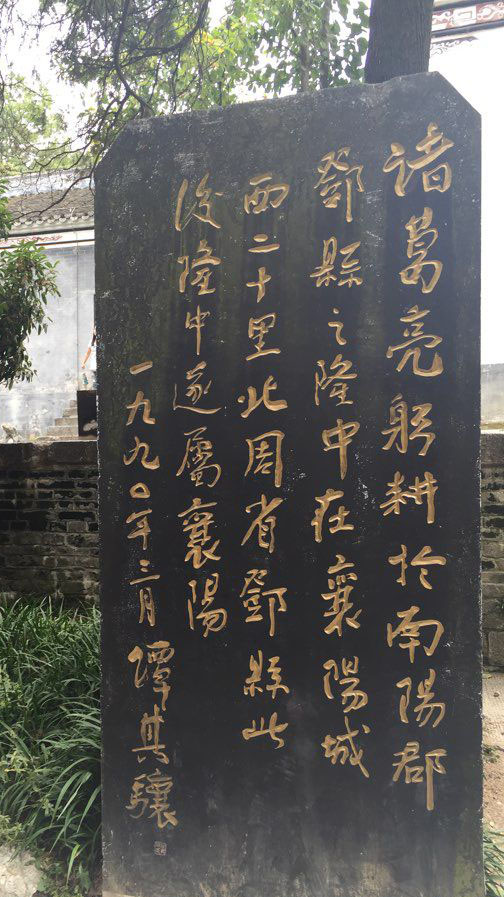 諸葛亮躬耕於南陽郡
鄧縣之隆中在襄陽城
西二十里北周省鄧縣此
後隆中遂屬襄陽
一九九〇年三月 譚其驤